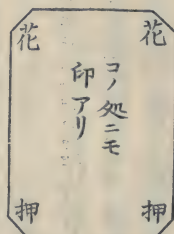 花
花
コノ処ニモ
印アリ
押
押